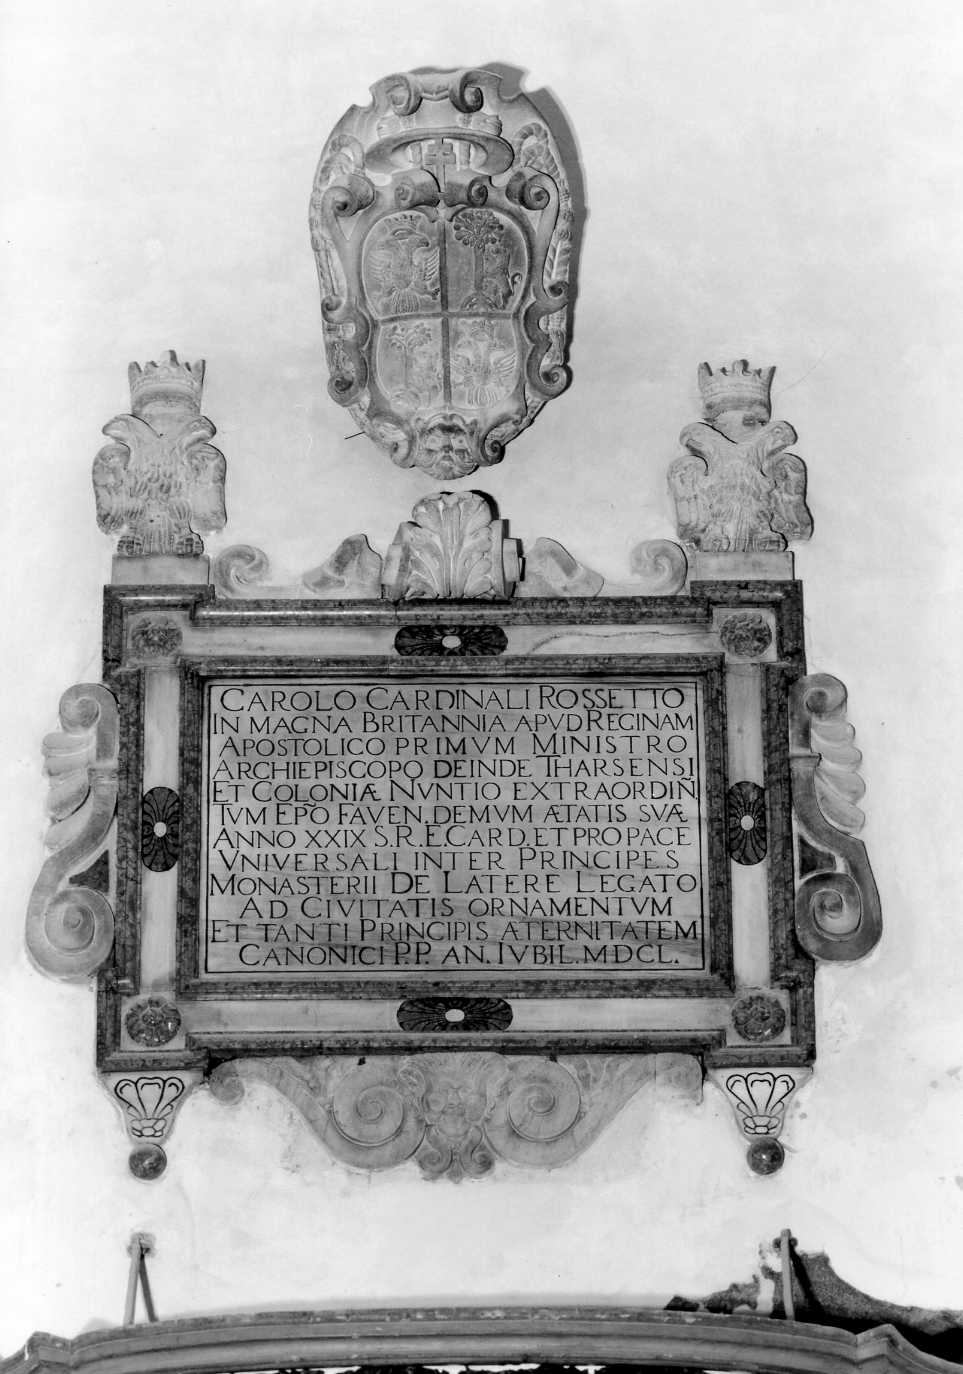 CAROLO CARDINALI ROSSETTO
IN MAGNA BRITANNIA APVD REGINAM
APOSTOLICO PRIMVM MINISTRO
ARCHIEPISCOPO DEINDE THARSENSI
ET COLONIÆ NVNTIO EXTRAORDIÑ
TVM EPÕ FAVEN. DEMVM ÆTATIS SVÆ
ANNO XXIX S.R.E.CARD.ET PRO PACE
VNIVERSALI INTER PRINCIPES
MONASTERII DE LATERE LEGATO
AD CIVITATIS ORNAMENTVM
ET TANTI PRINCIPIS ÆTERNITATEM
CANONICI PP. AN. IVBIL. MDCL.